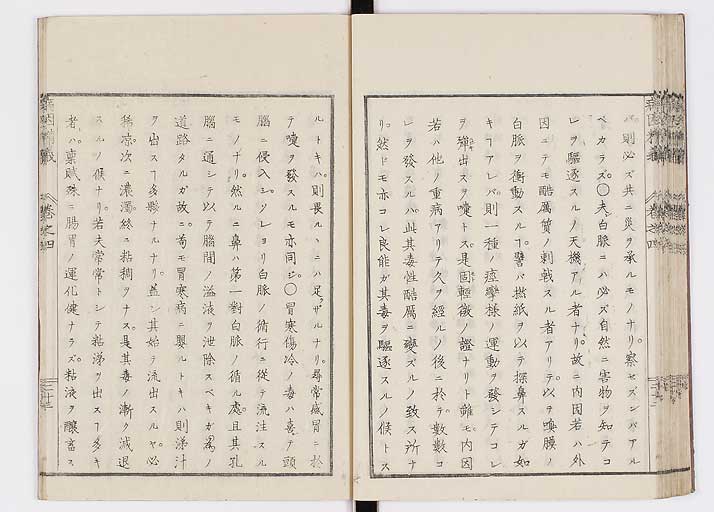 バ則必ズ共ニ災ヲ承ルモノナリ。察セズンバアル
ベカラズ。○夫白脈ニハ必ズ自然ニ害物ヲ知テコ
レヲ驅逐スルノ天機アル者ナリ。故ニ内因若ハ外
因ニテモ酷厲質ノ刺戟スル者アリテ。以テ嗅腰ノ
白脈ヲ衝動スルヿ。譬バ撚紙ヲ以テ探鼻スルガ如
キヿアレバ。則一種ノ痙攣様ノ運動ヲ發シテコレ
ヲ彈出スヲ嚏トス。是固輕微ノ證ナリト雖モ内因
若ハ他ノ重病アリテ久ヲ經ルノ後ニ於テ數數コ
レヲ發スルハ。此其毒性酷厲ニ變ズルノ致ス所ナ
リ。然ドモ亦コレ良能ガ其毒ヲ驅逐スルノ候トス
ルトキハ。則畏ルヽニハ足ラザルナリ。尋常感冒ニ於
テ嚏ヲ發スルモ亦同ジ。○冒寒傷冷ノ毒ハ喜テ頭
腦ニ侵入シ。ソレヨリ白脈ノ循行ニ從テ流注スル
モノナリ。然ルニ鼻ハ第一對白脈ノ循ル處。且其孔
腦ニ通シテ以テ腦間ノ溢液ヲ泄除スベキガ爲ノ
道路タルガ故ニ。苟モ冒寒病ニ嬰ルトキハ則涕汁
ヲ出スヿ多夥ナルナリ。蓋シ其始テ流出スルヤ。必
稀凉。次ニ濃濁。終ニ粘稠ヲナス。是其毒ノ漸ク減退
スルノ候ナリ。若夫常常トシテ粘涕ヲ出スヿ多キ
者ハ。稟賦殊ニ腸胃ノ運化健ナラズ。粘液ヲ釀畜ス
卷之四